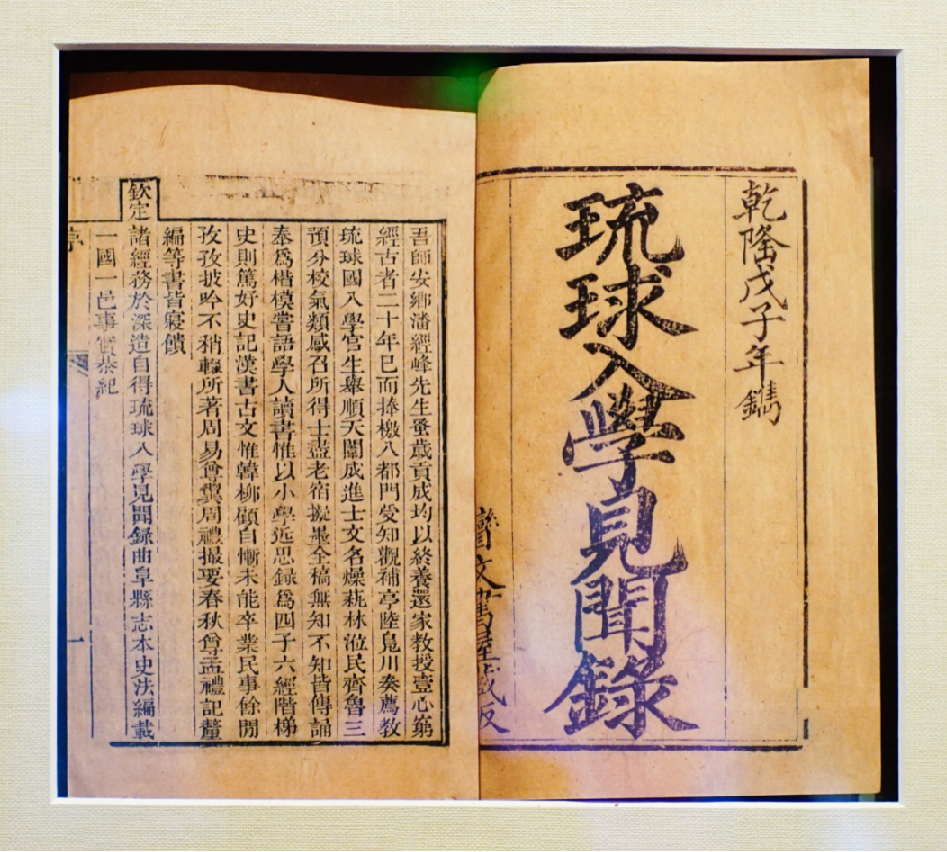 乾隆戊子年鐫
琉球入學見聞錄
文書屋藏板
吾師安鄉潘經峰先生蚤歲貢成均以終養還家教授壹心窮
經古者二十年已而捧檄入都門受知觀補亭陸鳧川奏薦教
琉球國入學官生舉順天闈成進士文名燥蓺林涖民齊魯三
預分校氣類感召所得士盡老宿擬墨全稿無知不知皆傳誦
奉為楷模嘗語學人讀書惟以小學近思錄為四子六經階梯
史則篤好史記漢書古文惟韓柳顧自慚未能卒業民事餘閒
孜孜披吟不稍輟所著周易尊翼周禮撮要春秋尊孟禮記釐
編等書皆寢饋
欽定
諸經務於深造自得琉球入學見聞錄曲阜縣志本史法編載
一國一邑事實恭紀